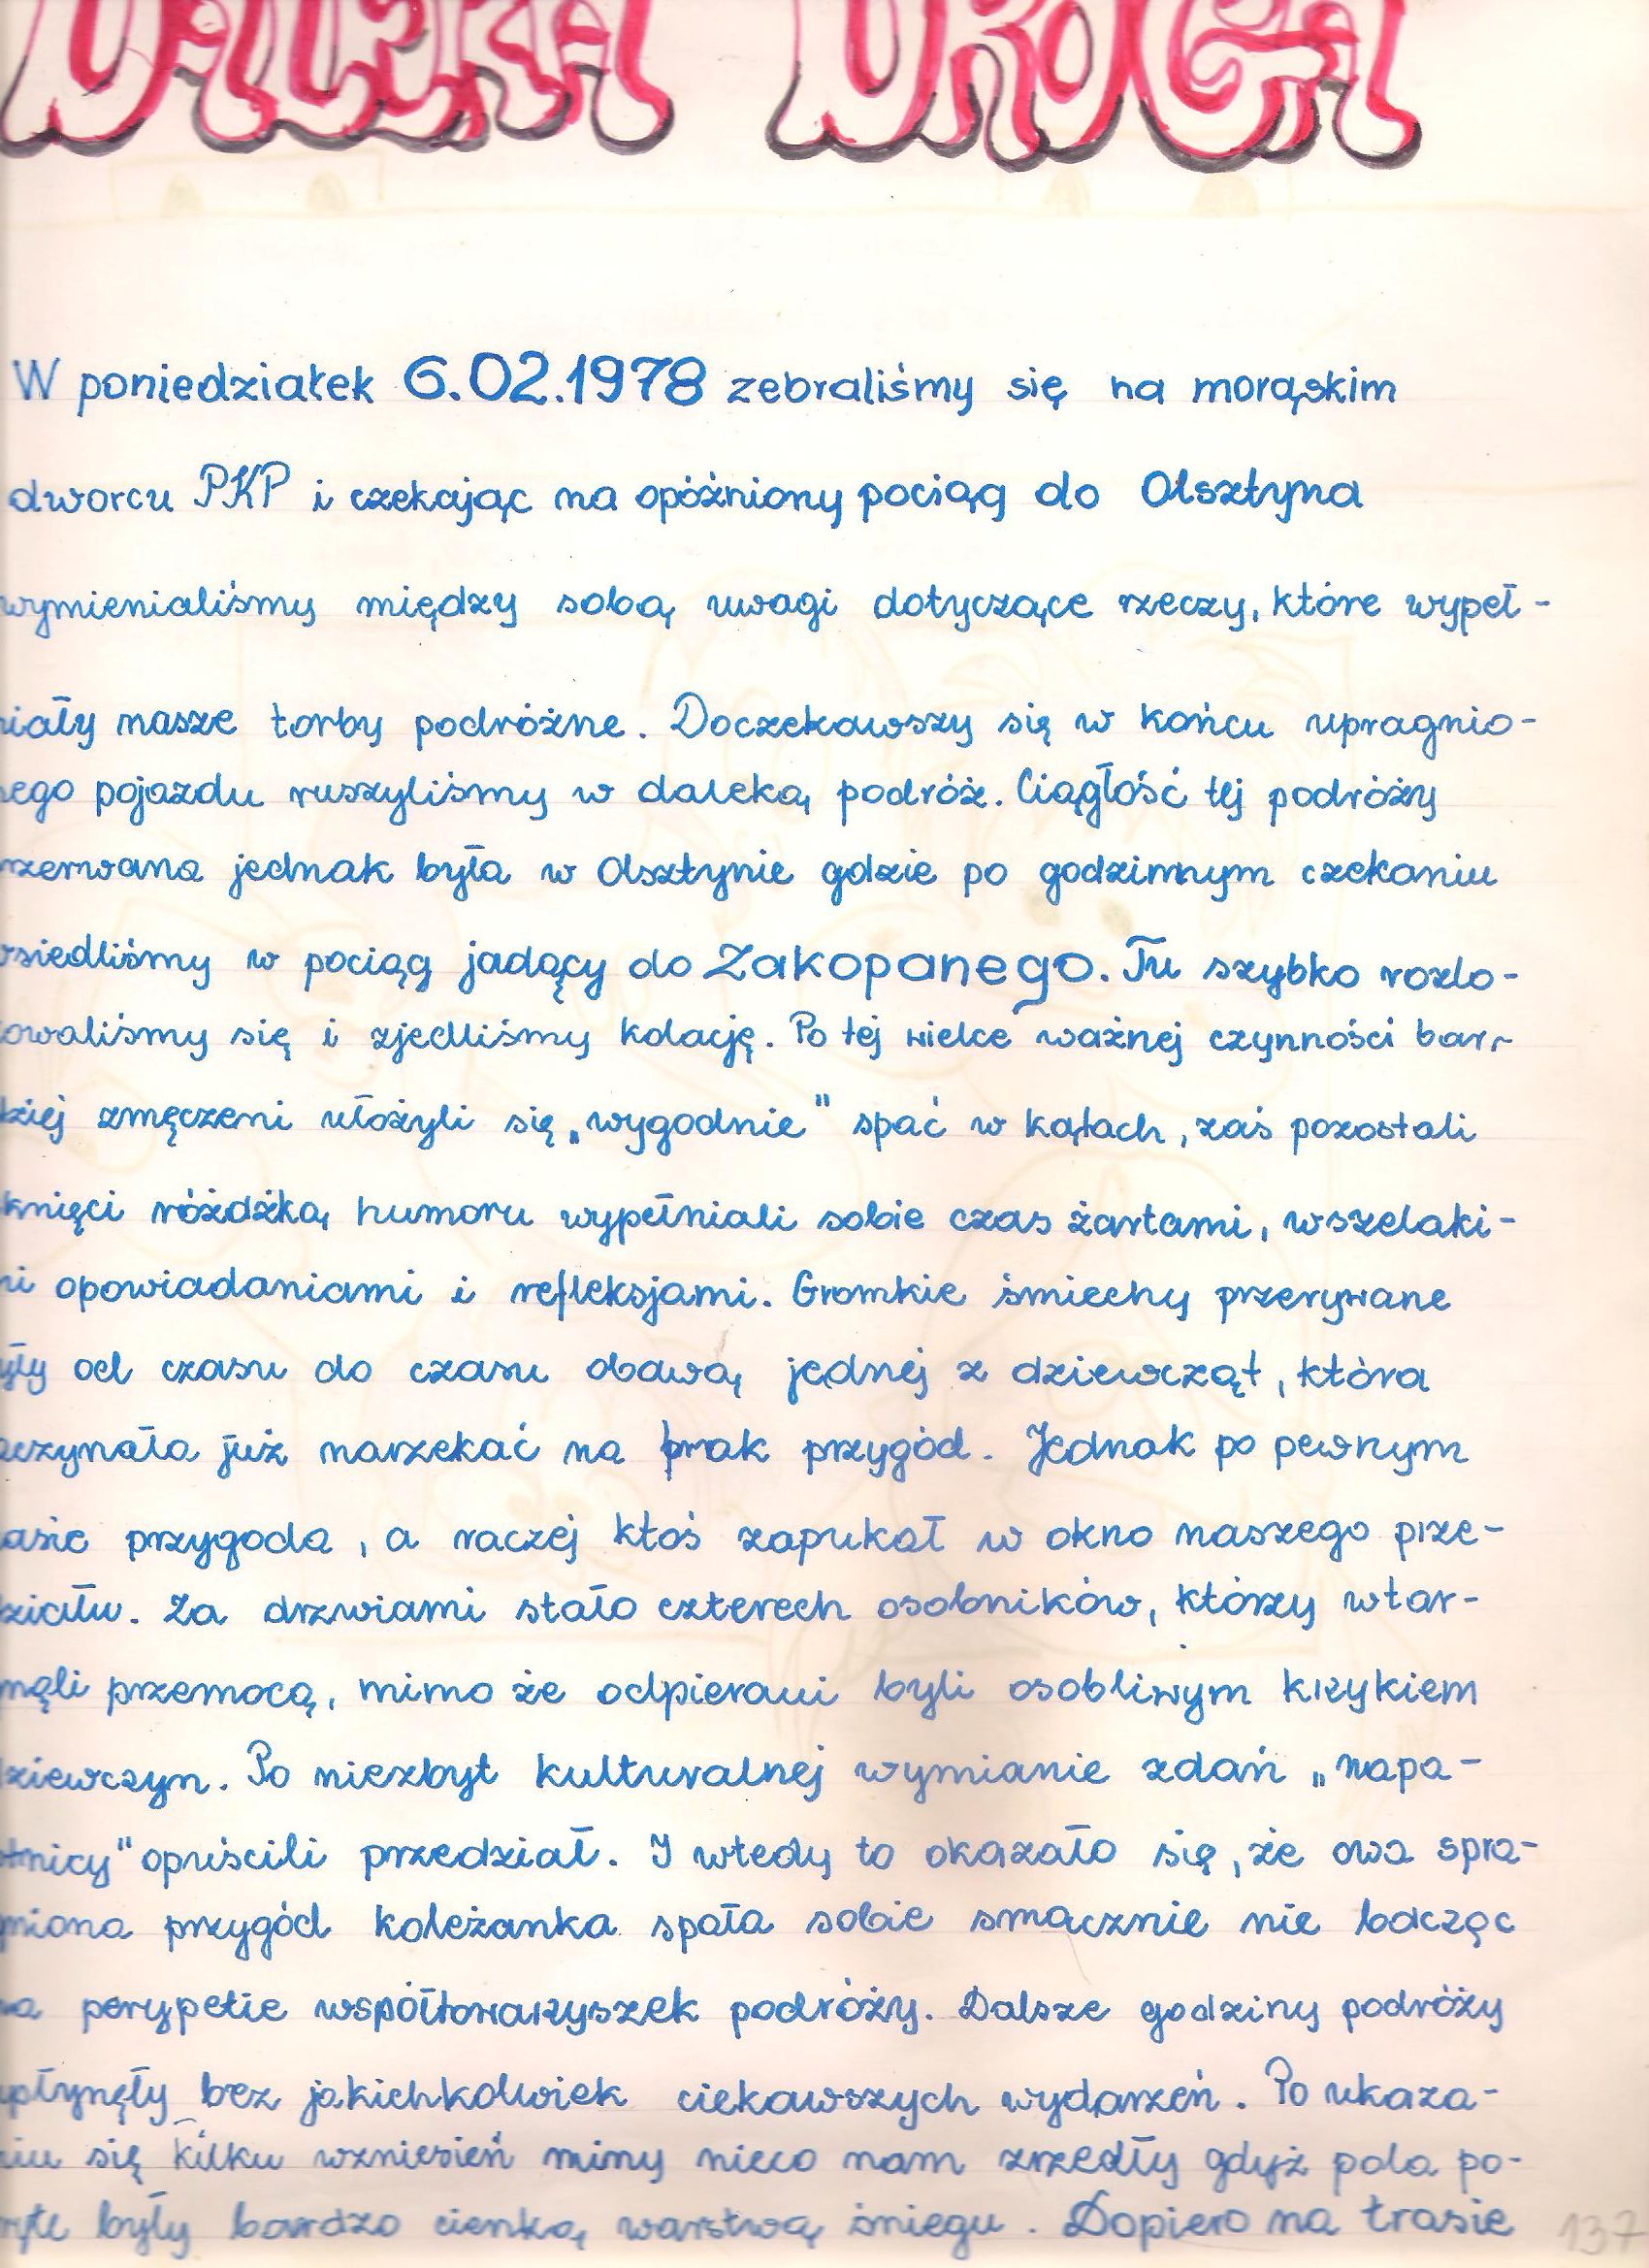 DALEKA DROGA
W poniedziałek 6.02.1978 zebraliśmy się na morąskim
dworcu PKP i czekając na opóźniony pociąg do Olsztyna
wymienialiśmy między sobą uwagi dotyczące rzeczy, które wypeł-
niały nasze torby podróżne. Doczekawszy się w końcu upragnio-
nego pojazdu ruszyliśmy w daleką podróż. Ciągłość tej podróży
rzerwana jednak była w Olsztynie gdzie po godzinnym czekaniu
wsiedliśmy w pociąg jadący do Zakopanego. Tu szybko rozlo-
kowaliśmy się i zjedliśmy kolację. Po tej wielce ważnej czynności bar-
dziej zmęczeni ułożyli się „wygodnie" spać w kątach, zaś pozostali
knięci różdżką humoru wypełniali sobie czas żartami, wszelaki-
mi opowiadaniami i refleksjami. Gromkie śmiechy przerywane
yły od czasu do czasu obawą jednej z dziewcząt, która
aczynała już narzekać na brak przygód. Jednak po pewnym
asie przygoda, a raczej ktoś zapukał w okno naszego prze-
działu. Za drzwiami stało czterech osobników, którzy wtar-
nęli przemocą, mimo że odpierani byli osobliwym krzykiem
dziewczyn. Po niezbyt kulturalnej wymianie zdań „napa-
stnicy" opuścili przedział. I wtedy to okazało się, że owa spra-
gniona przygód koleżanka spała sobie smacznie nie bacząc
na perypetie współtowarzyszek podróży. Dalsze godziny podróży
upłynęły bez jakichkolwiek ciekawszych wydarzeń. Po ukaza-
niu się kilku wzniesień miny nieco nam zrzedły gdyż pola po-
ryte były bardzo cienką warstwą śniegu. Dopiero na trasie
137